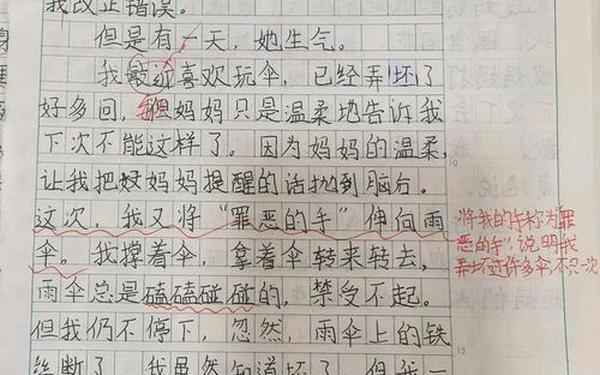 我改正错误。
但是有一天，她生气。
我最近喜欢玩伞，已经弄坏了
好多回，但妈妈只是温柔地告诉我
下次不能这样了。因为妈妈的温柔，
让我把妈妈提醒的话抛到脑后。
这次，我又将“罪恶的手”伸向雨
伞。我撑着伞，拿着伞转来转去，
雨伞总是磕磕碰碰的，禁受不起。
但我仍不停下，忽然，雨伞上的铁
丝断了，我虽然知道坏了，但我一
将我的手称为罪
恶的手”，说明我
弄坏过许多伞，不只一次
10
15